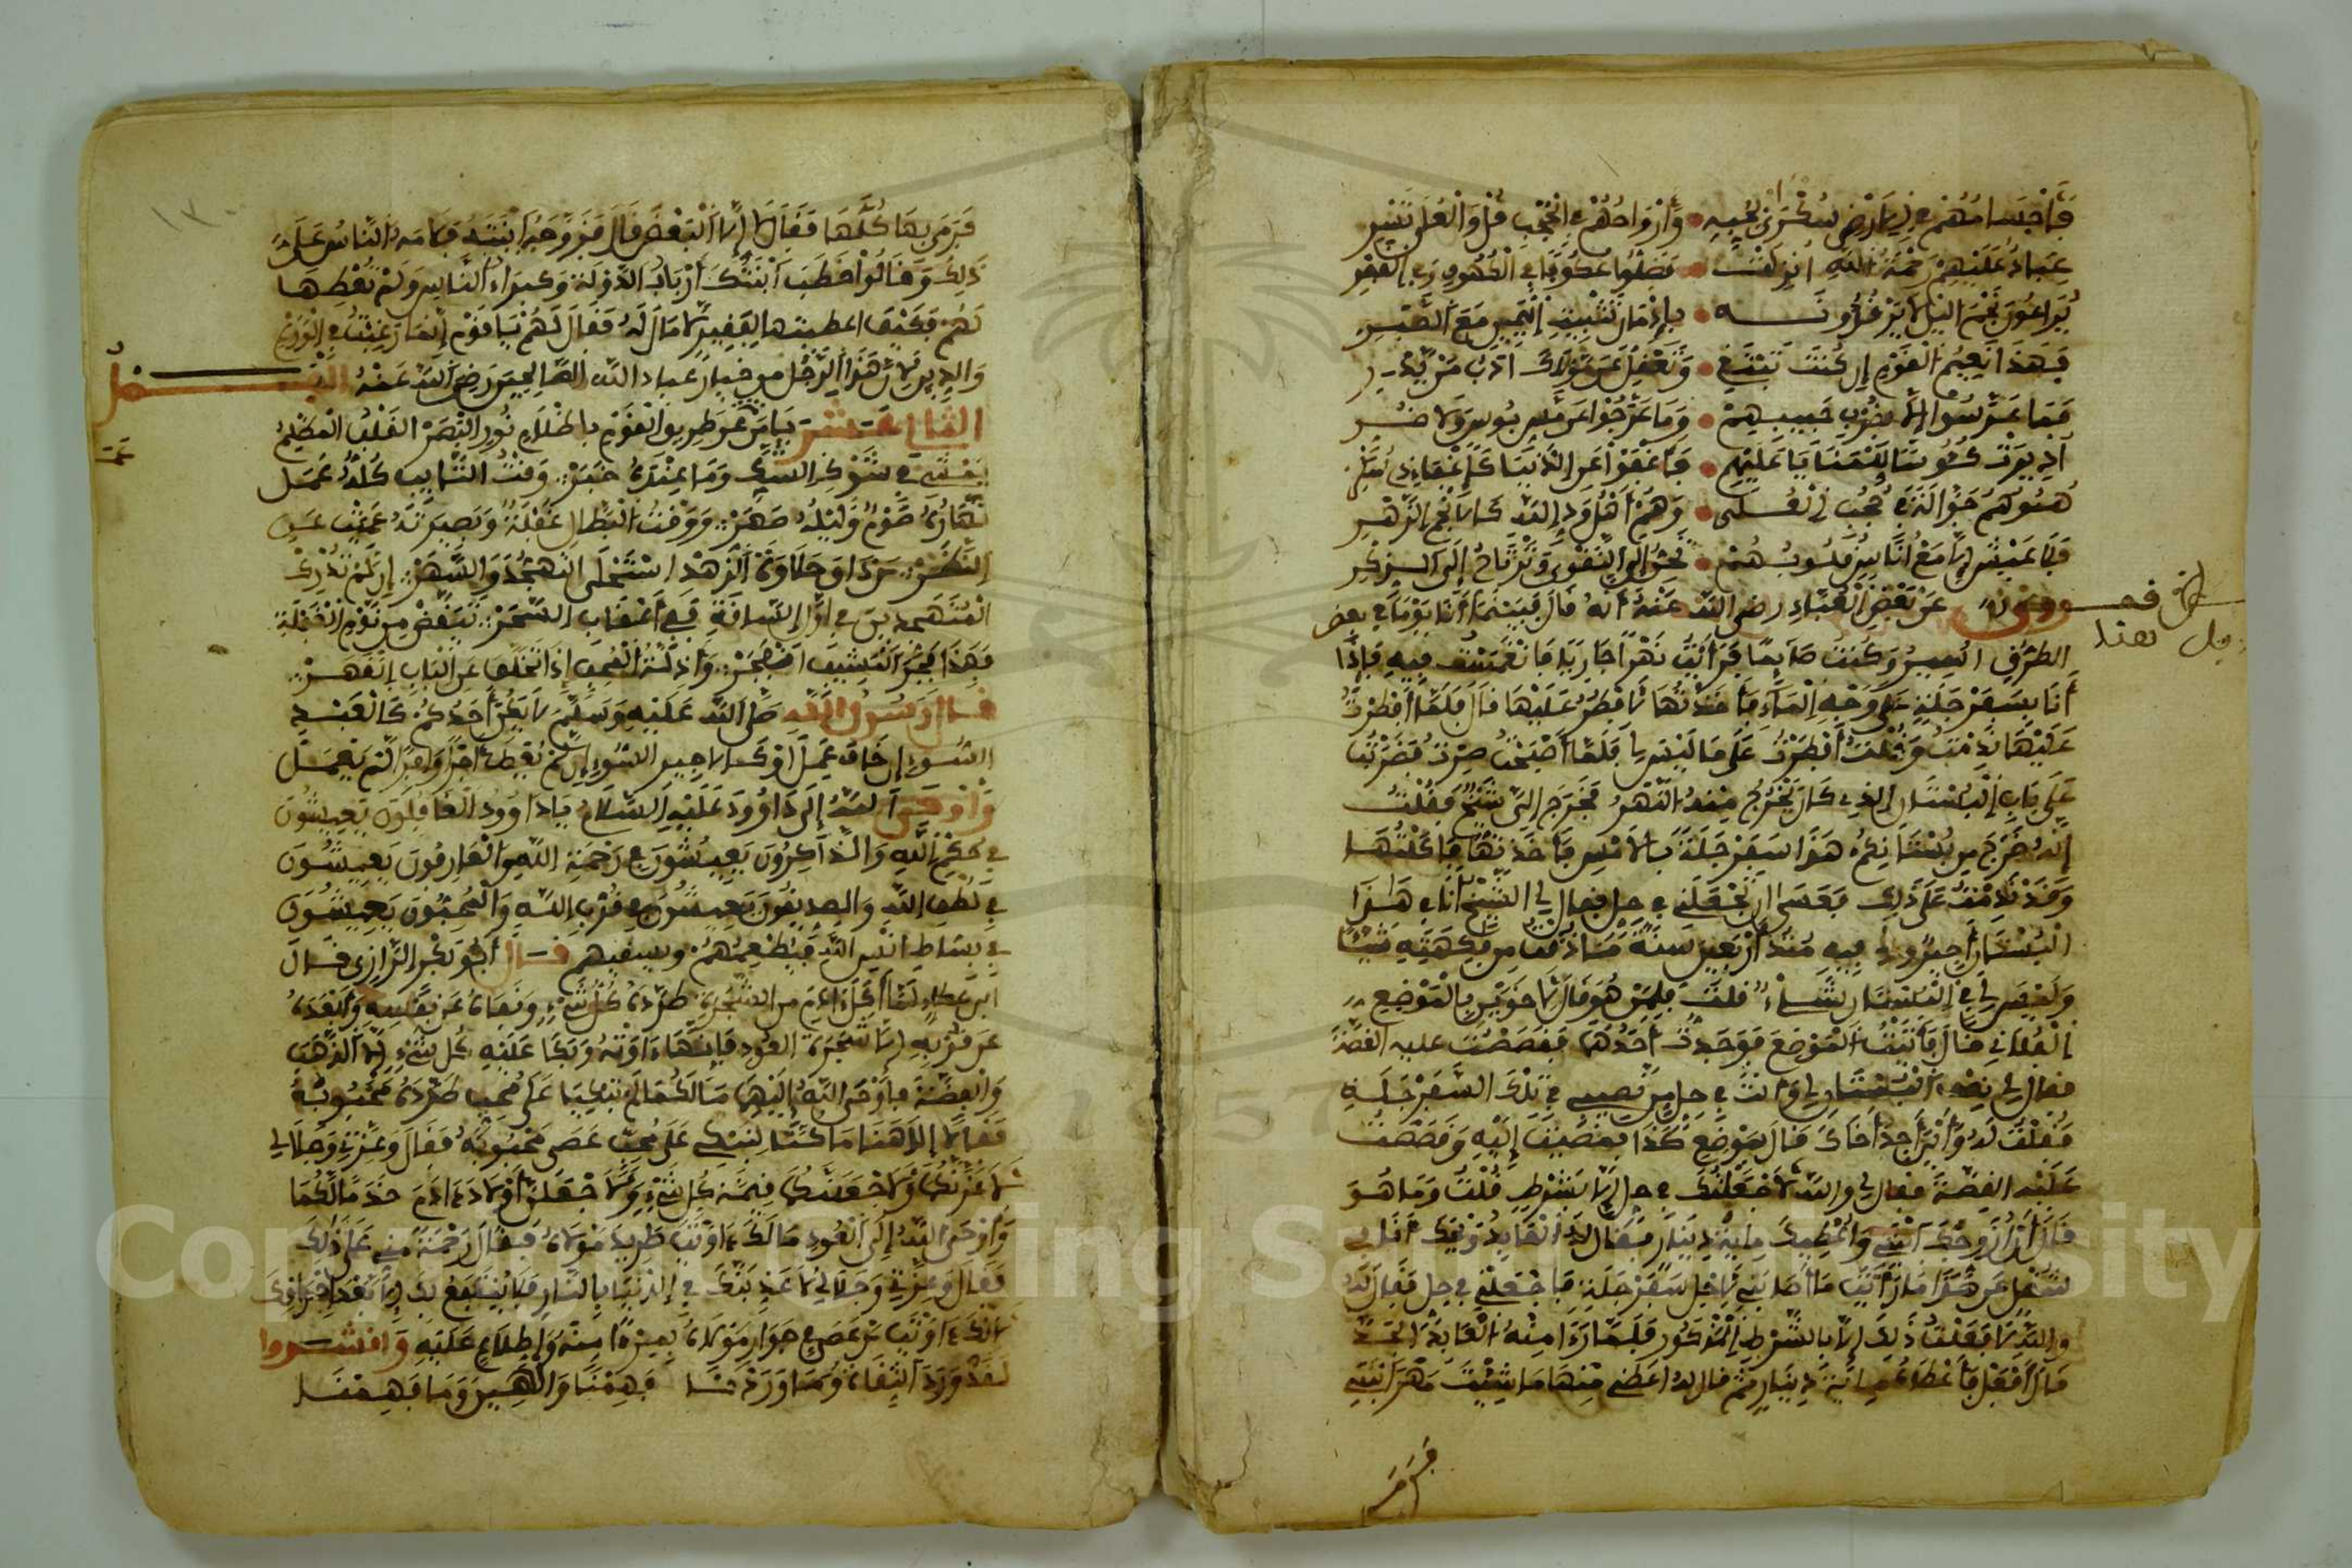 فأجسامهم في الأرض سكرى بحبه • وأرواحهم في الحجب نحو العلى تسر
عباد عليهم رحمة الله انزلت • فضلوا عكوفا في الكهوف وفي القفر
يراعون نجم الليل لا يرقدونه • بإدمان تثبيت اليقين مع الصبر
فهذا نعيم القوم إن كنت تبتغي • وتعقل عن مولاك آداب من يدري
فما عرسوا إلا بقرب حبيبهم • وما عرجوا عن مس بوس ولا ضر
أديرت كؤوس للمنايا عليهم • فأغفوا عن الدنيا كإغفاء ذي السكر
همومهم جوالة في حجب العلى • وهم أهل ود الله كالأنجم الزهر
فلا عيش إلا مع أناس قلوبهم • تحن إلى التقوى وترتاح إلى الذكر
وحكي عن بعض العباد رضي الله عنه أنه قال بينما أنا يوما في بعض
الطرق أسير وكنت صائما فرأيت نهرا جاريا فانغمست فيه فإذا
أنا بسفرجلة على وجه الماء فأخذتها لأفطر عليها قال فلما أفطرت
عليها ندمت وقلت أفطرت على ما ليس لي فلما أصبحت صرت فضربت
على باب البستان الذي كان يخرج منه النهر فخرج إلي شيخ فقلت
إنه خرج من بستانكم هذا سفرجلة بالأمس فأخذتها فأكلتها
وقد ندمت على ذلك فعسى ان تجعلني في حل فقال لي الشيخ أنا في هذا
البستان أجير ولي فيه منذ أربعين سنة ما ذقت من فاكهته شيئا
وليس لي في البستان شيء قلت فلمن هو قال لأخوين بالموضع
الفلاني قال فأتيت الموضع فوجدت أحدهما فقصصت عليه القصة
فقال لي نصف البستان لي وأنت في حل من نصيبي في تلك السفرجلة
فقلت له وأين أجد أخاك قال بموضع كذا فمضيت إليه وقصصت
عليه القصة فقال لي والله لا جعلتك في حل إلا بشرط قلت وما هو
قال أن أزوجك ابنتي وأعطيك مائة دينار فقال له العابد ويحك أنا في
شغل عن هذا ما رأيت ما أصابني لأجل سفرجلة فاجعلني في حل فقال له
والله لا فعلت ذلك إلا بالشرط المذكور فلما رءا منه العابد الجد
قال أفعل فأعطاه مائة دينار ثم قال له أعطني منها ما شئت مهر ابنتي
فرمى
١٣٠
فرمى بها كلها فقال لا إلا البعض قال فزوجه ابنته فلامه الناس على
ذلك وقالوا خطب ابنتك أرباب الدولة وكبراء الناس ولم تعطها
لهم فكيف اعطيتها لفقير لا مال له فقال لهم يا قوم إنما رغبت في الورع
والدين لأن هذا الرجل من خيار عباد الله الصالحين رضي الله عنه الفصل
الثاني عشر يا من عن طريق القوم با ظلام نور البصر القلب المظلم
يمشي في شوك الشك وما عنده خبر وقت التائب كله عمل
نهاره صوم وليله سهر ووقت البطال غفلة وبصيرته عميت عن
النظر من ذاق حلاوة الزهد استحلى التهجد والسهر إن لم تدرك
المتهجدين في أول المسافة ففي أعقاب السحر تيقظ من نوم الغفلة
فهذا فجر المشيب انفجر وأذلة المحب إذا تخلف عن الباب انقهر
قال رسول الله صلى الله عليه وسلم لا يكن أحدكم كالعبد
السوء إن خاف عمل أو كالأجير السوء إن لم يعط أجرا وافرا لم يعمل
وأوحى الله إلى داوود عليه السلام يا داوود الغافلون يعيشون
في حكم الله والذاكرون يعيشون في رحمة الله والعارفون يعيشون
في لطف الله والصديقون يعيشون في قرب الله والمحبون يعيشون
في بساط انس الله يطعمهم ويسقيهم قال أبو بكر الرازي قال
ابن عطاء لما أكل ءادم من الشجرة طرده كل شيء ونفاه عن نفسه وأبعده
عن قربه إلا شجرة العود فإنها ءاوته وبكا عليه كل شيء إلا الذهب
والفضة فأوحى الله إليهما ما لكما لم تبكيا على محب طرده محبوبه
فقالا إلاهنا ما كنا لنبكي على محب عصى محبوبه فقال وعزتي وجلالي
لأعزنكما ولأجعلنكما قيمة كل شيء ولأجعلن أولاد ءادم خدما لكما
وأوحى الله إلى العود مالك ءاويت طريد مولاه فقال رحمة مني على ذلك
فقال وعزتي وجلالي لأعذبنك في الدنيا بالنار فلا ينتفع بك إلا بعد احراقك
لأنك ءاويت من عصى في جوار مولاه بمنزة منه واطلاع عليه وأنشدوا
لقد ورد التقاة وما وردنا فهمنا والهين وما فهمنا